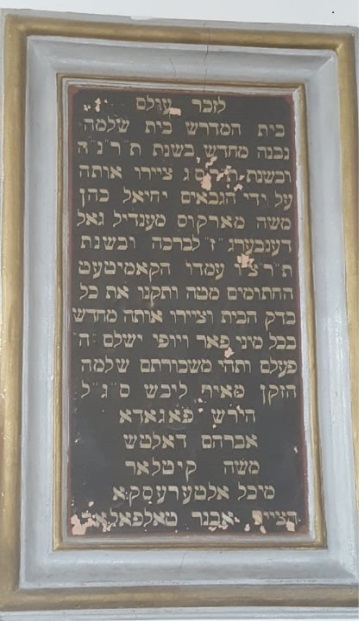 לזכר עולם
בית המדרש בית שלמה
נבנה מחדש בשנת ת״ר״נ״ה
ובשנת ציירו אותה
על ידי הגבאים יחיאל כהן
משה מארקוס מענדיל גאל
דענבערג״ז לברכה ובשנת
עמדו הקאמיטעט
החתומים מטה ותקנו את כל
בדק הבית וציירו אותה מחדש
בכל מיני פאר ויופי ישלם ה״
פעלם ותהי משכורתם שלמה
הזקן מאיר ליבש ס״ג״ל
הירש פאגאדא
אברהם דאלטש
משה קיטלאר
מיכל אלטערעסקא
הצייר אבנר